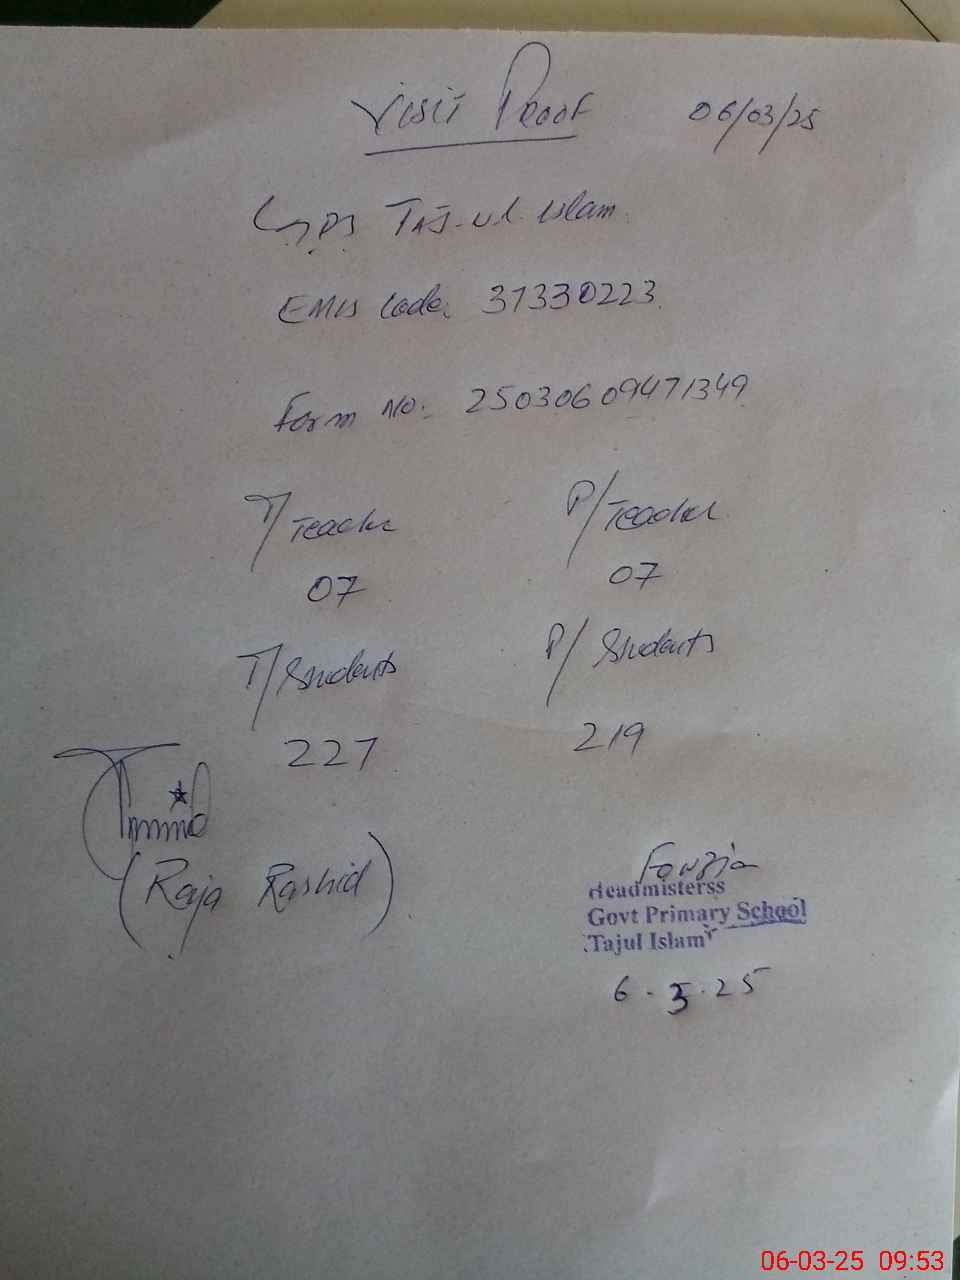 Visit Proof 06/03/25
GPS Taj-ul-Islam
EMIS Code: 37330223
Form No: 25030609471349
T/Teacher P/Teacher
07 07
T/Students P/Students
227 219
(Raja Rashid)
Fouzia
Headmisterss
Govt Primary School
Tajul Islam
6.3.25
06-03-25 09:53